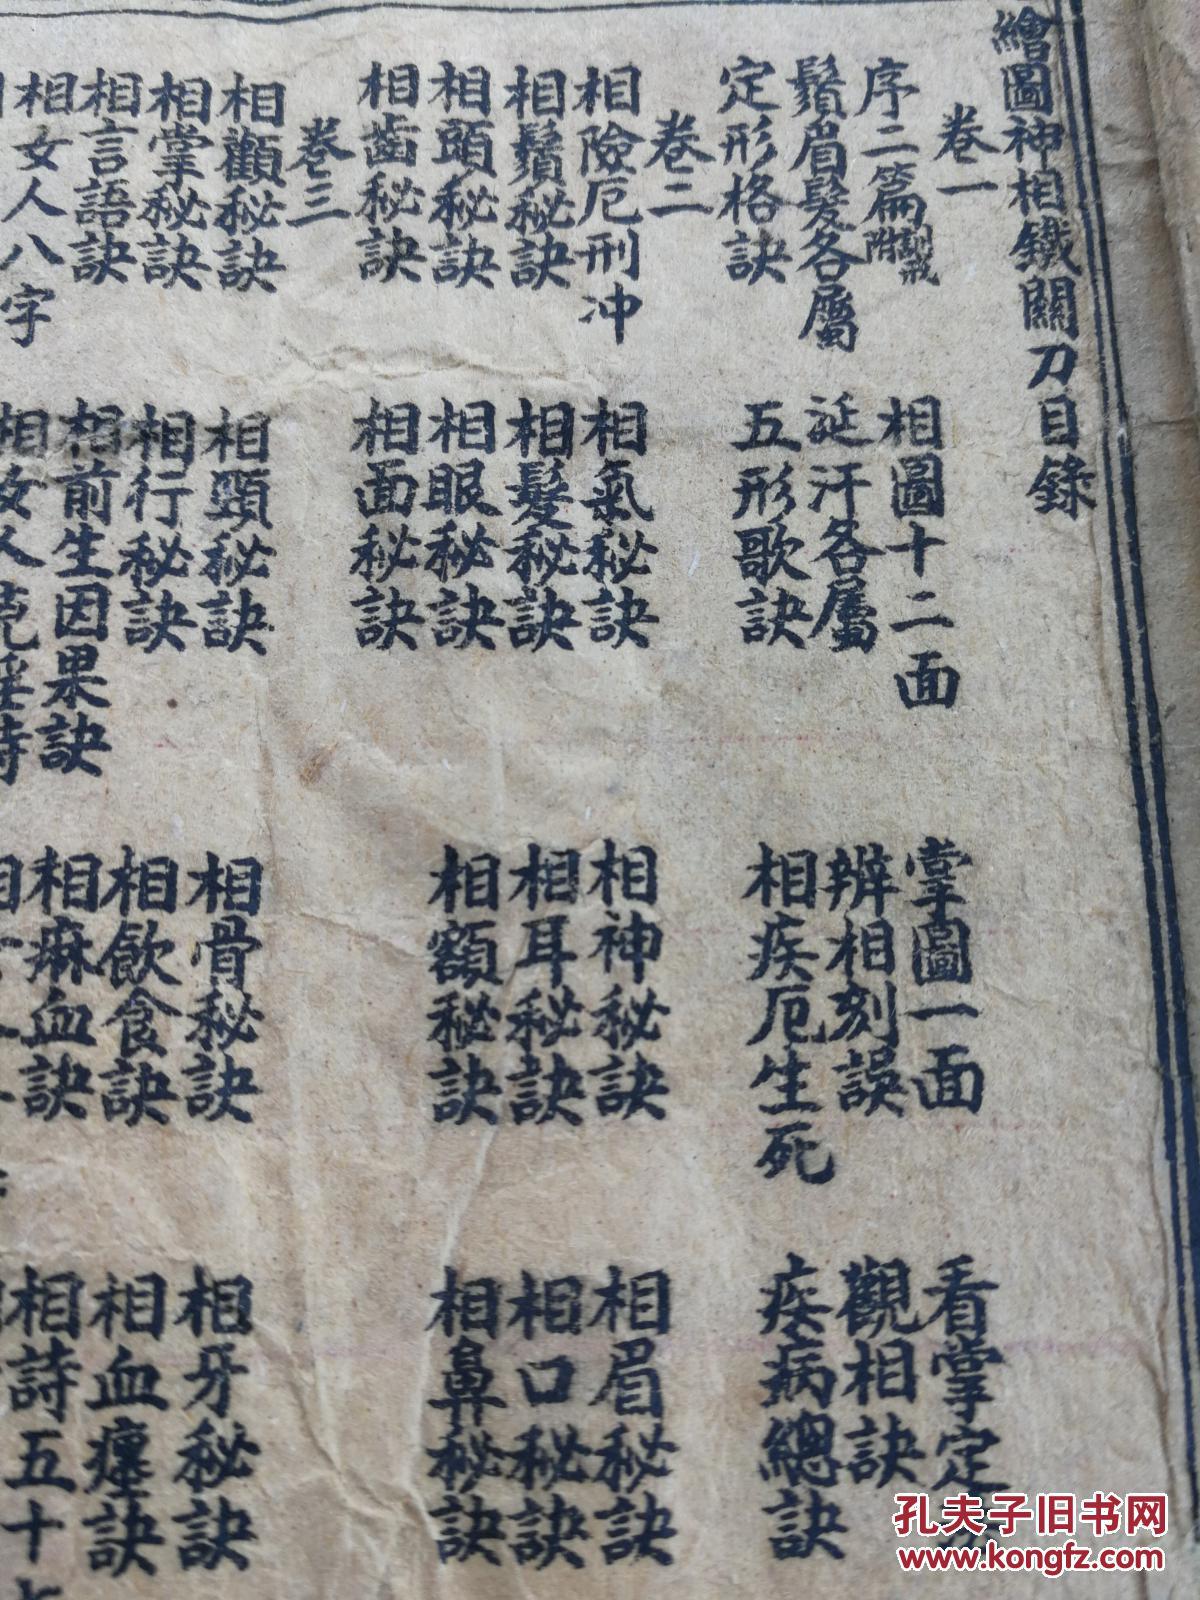 繪圖神相鐵關刀目錄
卷一
序二篇附訓戒 相圖十二面 掌圖一面 看掌定
鬚眉髮各屬 涎汗各屬 辨相刻誤 觀相訣
定形格訣 五形歌訣 相疾厄生死 疾病總訣
卷二
相險厄刑冲 相氣秘訣 相神秘訣 相眉秘訣
相鬚秘訣 相髮秘訣 相耳秘訣 相口秘訣
相頭秘訣 相眼秘訣 相額秘訣 相鼻秘訣
相齒秘訣 相面秘訣
卷三
相顴秘訣 相頸秘訣 相骨秘訣 相牙秘訣
相掌秘訣 相行秘訣 相飲食訣 相血壅訣
相言語訣 相前生因果訣 相麻血訣 相詩五十
相女人八字 相女人
孔夫子旧书网
www.kongfz.com